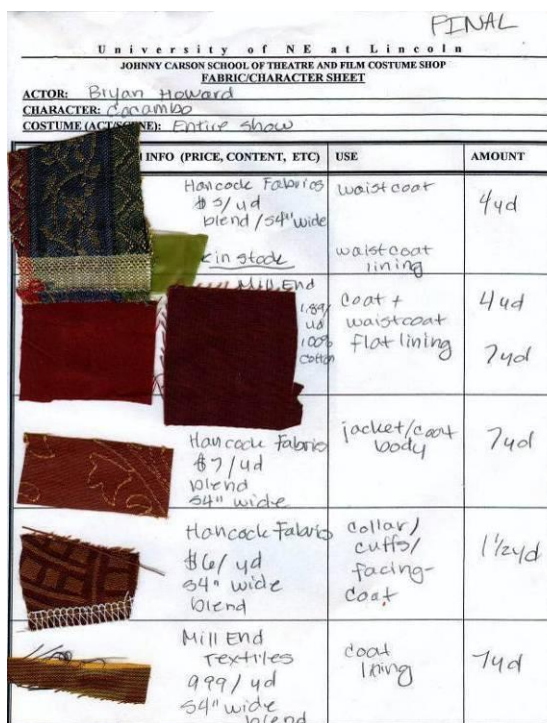 FINAL
University of NE at Lincoln
JOHNNY CARSON SCHOOL OF THEATRE AND FILM COSTUME SHOP
FABRIC/CHARACTER SHEET
ACTOR: Bryan Howard
CHARACTER: Cacambo
COSTUME (ACT/SCENE): Entire show
INFO (PRICE, CONTENT, ETC) USE AMOUNT
Hancock Fabrics
$5/yd
blend/54" wide
waistcoat
4yd
in stock
waistcoat
lining
Mill End
1.89/
yd
100%
cotton
coat +
waistcoat
flat lining
4yd
7yd
Hancock Fabric
$7/yd
blend
54" wide
jacket/coat
body
7yd
Hancock Fabric
$6/yd
54" wide
blend
collar/
cuffs/
facing-
coat
1 1/2yd
Mill End
Textiles
999/yd
54" wide
blend
coat
lining